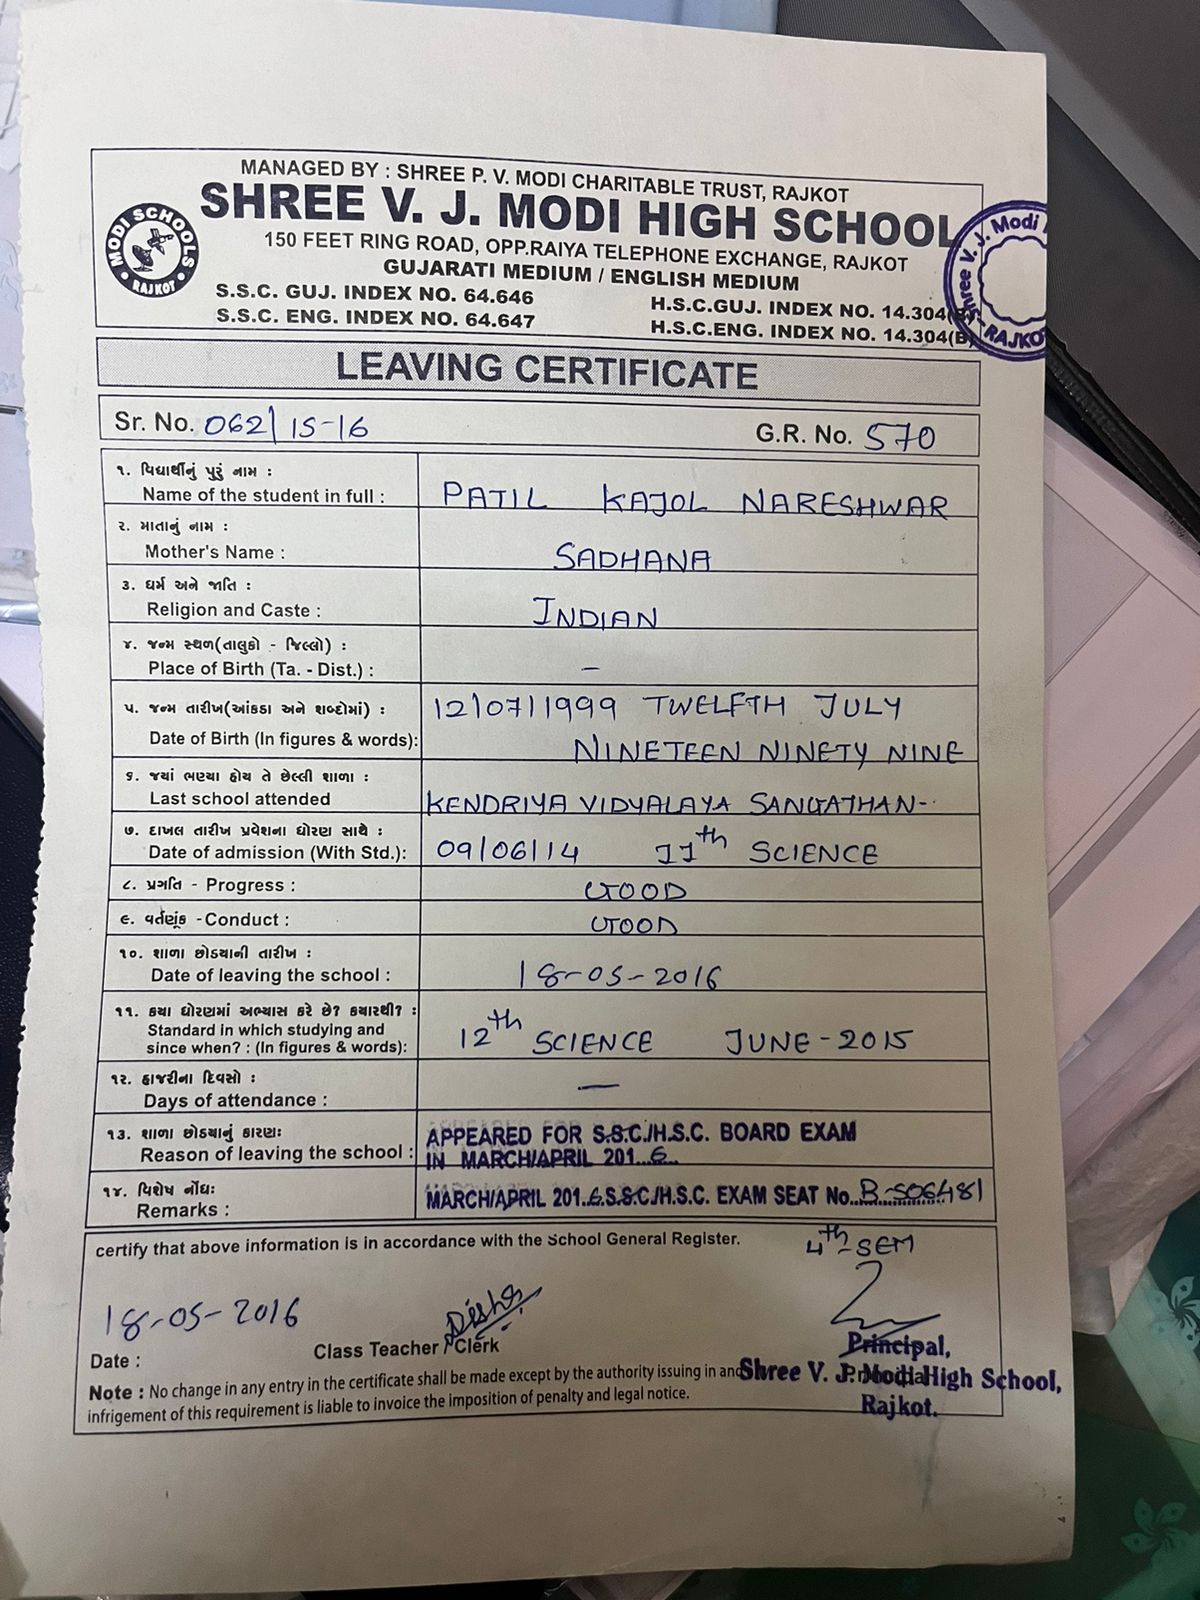 MANAGED BY : SHREE P. V. MODI CHARITABLE TRUST, RAJKOT
SHREE V. J. MODI HIGH SCHOOL
150 FEET RING ROAD, OPP.RAIYA TELEPHONE EXCHANGE, RAJKOT
GUJARATI MEDIUM / ENGLISH MEDIUM
S.S.C. GUJ. INDEX NO. 64.646 H.S.C.GUJ. INDEX NO. 14.304(B)
S.S.C. ENG. INDEX NO. 64.647 H.S.C.ENG. INDEX NO. 14.304(B)
MODI SCHOOLS
RAJKOT
Shree V. J. Modi
RAJKOT
LEAVING CERTIFICATE
Sr. No. 062/15-16 G.R. No. 570
૧. વિદ્યાર્થીનું પુરું નામ :
Name of the student in full : PATIL KAJOL NARESHWAR
૨. માતાનું નામ :
Mother's Name : SADHANA
૩. ધર્મ અને જાતિ :
Religion and Caste : INDIAN
૪. જન્મ સ્થળ(તાલુકો - જિલ્લો) :
Place of Birth (Ta. - Dist.) : –
૫. જન્મ તારીખ(આંકડા અને શબ્દોમાં) : 12/07/1999 TWELFTH JULY
Date of Birth (In figures & words): NINETEEN NINETY NINE
૬. જયાં ભણ્યા હોય તે છેલ્લી શાળા :
Last school attended KENDRIYA VIDYALAYA SANGATHAN-
૭. દાખલ તારીખ પ્રવેશના ધોરણ સાથે :
Date of admission (With Std.): 09/06/14 11th SCIENCE
૮. પ્રગતિ - Progress : GOOD
૯. વર્તણૂંક -Conduct : GOOD
૧૦. શાળા છોડયાની તારીખ :
Date of leaving the school : 18-05-2016
૧૧. કયા ધોરણમાં અભ્યાસ કરે છે? કયારથી? :
Standard in which studying and
since when? : (In figures & words): 12th SCIENCE JUNE-2015
૧૨. હાજરીના દિવસો :
Days of attendance : —
૧૩. શાળા છોડયાનું કારણઃ APPEARED FOR S.S.C./H.S.C. BOARD EXAM
Reason of leaving the school : IN MARCH/APRIL 201..6..
૧૪. વિશેષ નોંધઃ
Remarks : MARCH/APRIL 201..6 S.S.C./H.S.C. EXAM SEAT No..B-506481
certify that above information is in accordance with the School General Register. 4th SEM
18-05-2016
Date : Class Teacher / Clerk
Principal,
Shree V. J. Modi High School,
Rajkot.
Note : No change in any entry in the certificate shall be made except by the authority issuing in and
infrigement of this requirement is liable to invoice the imposition of penalty and legal notice.